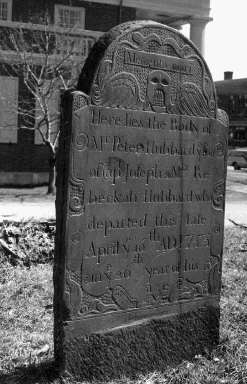 Memento mori
Here lies the Body of
Mr Peter Hubbard son
of Cap Joseph & Mrs Re
beckah Hubbard who
departed this Life
April ye 10th AD
in ye year of his
age